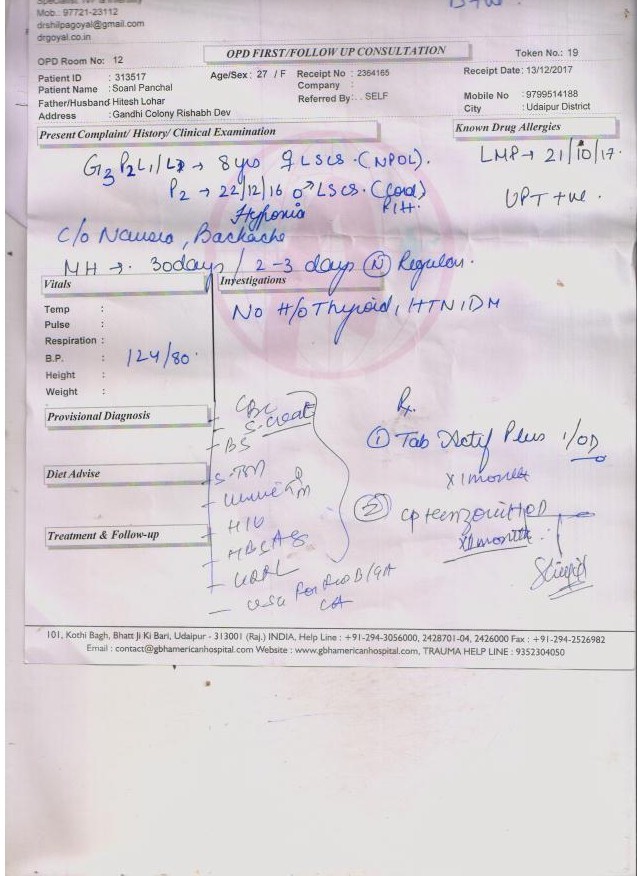 Mob.: 97721-23112
drshilpagoyal@gmail.com
drgoyal.co.in
OPD FIRST/FOLLOW UP CONSULTATION
OPD Room No: 12
Token No.: 19
Patient ID : 313517
Age/Sex : 27 / F
Receipt No : 2364165
Receipt Date: 13/12/2017
Patient Name : Soanl Panchal
Company :
Father/Husband Hitesh Lohar
Referred By: . SELF
Mobile No : 9799514188
Address : Gandhi Colony Rishabh Dev
City : Udaipur District
Present Complaint/ History/ Clinical Examination
Known Drug Allergies
G3 P2L1/ → 8 yrs ♀ LSCS . (NPOL).
LMP → 21/10/17.
P2 → 22/12/16 ♂ LSCS . (Cord)
UPT +ve .
Hypoxia
C/o Nausea , Backache
MH → . 30days / 2-3 days (N) Regular .
Vitals
Investigations
No H/o Thyroid, HTN, DM
Temp :
Pulse :
Respiration :
B.P. : 124/80 .
Height :
Weight :
Provisional Diagnosis
Diet Advise
Treatment & Follow-up
- CBC
S. creat
- BS
- S. TSH
- Urine
- HIV
- HBSAg
- VDRL
- USG For
Rx
① Tab Plus 1/OD
X 1 month
②
OD
X 1 month
101, Kothi Bagh, Bhatt Ji Ki Bari, Udaipur - 313001 (Raj.) INDIA, Help Line : +91-294-3056000, 2428701-04, 2426000 Fax : +91-294-2526982
Email : contact@gbhamericanhospital.com Website : www.gbhamericanhospital.com, TRAUMA HELP LINE : 9352304050